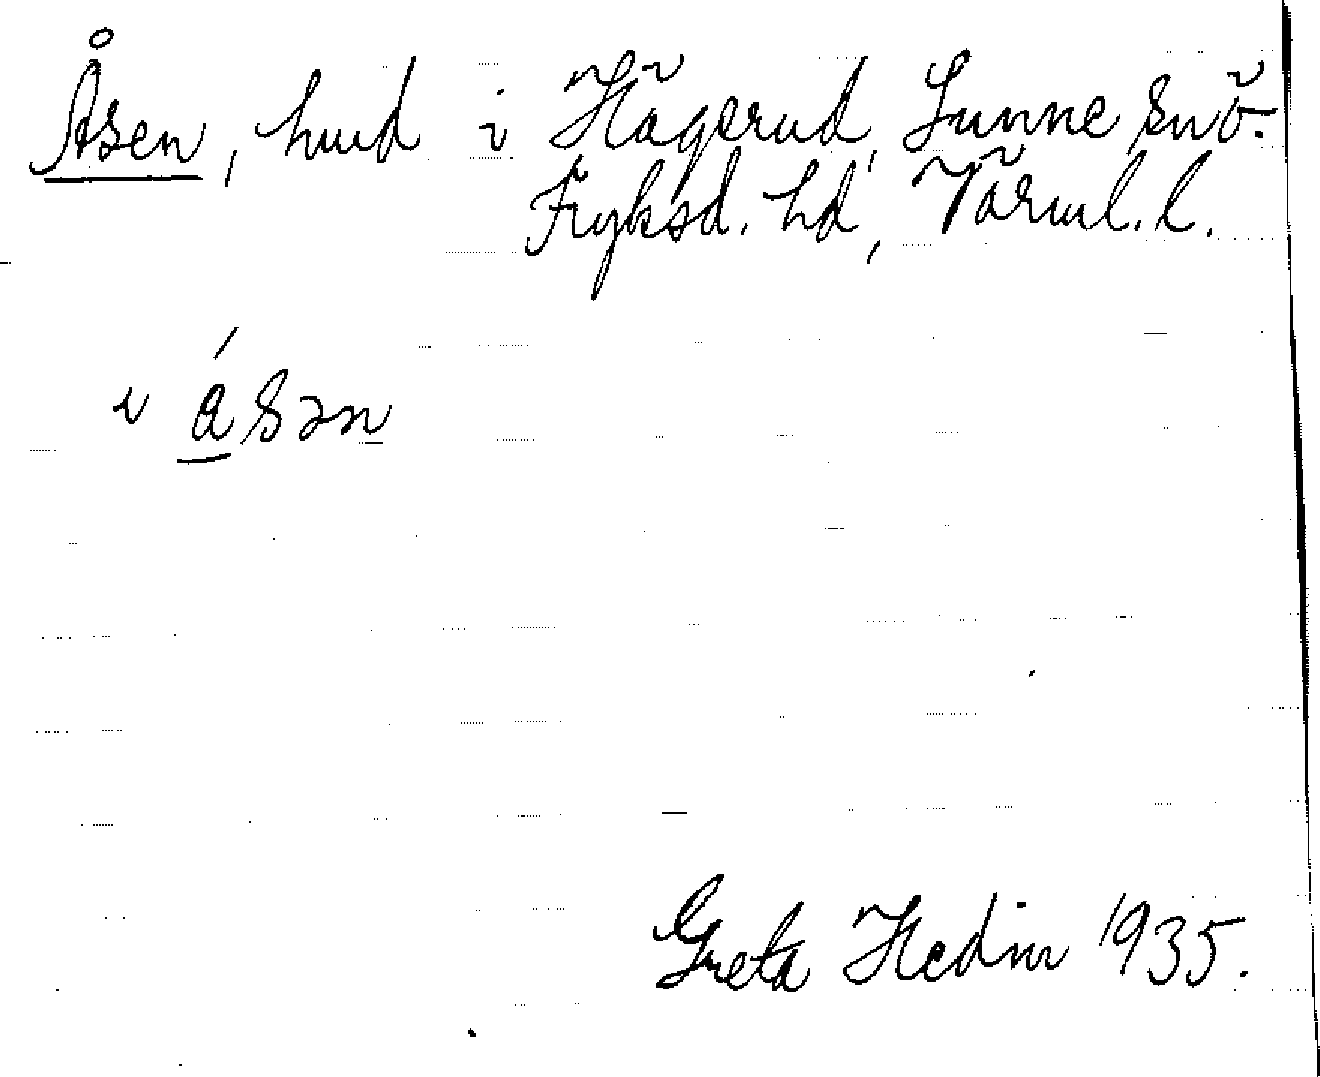 Åsen, hmd i Hägerud, Sunne snö.
Fryksd. hd, Värml. l.
i ásən
Greta Hedin 1935.